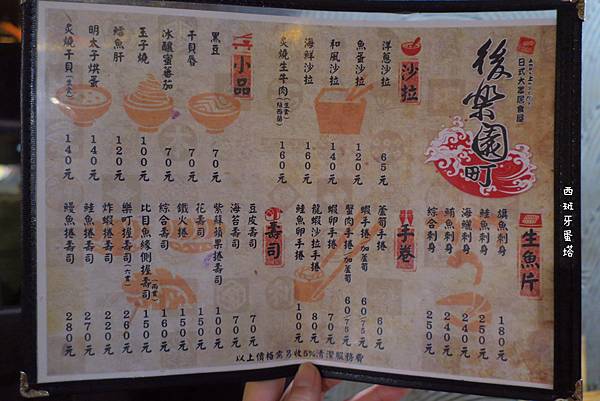 後樂園町
日式大眾居食屋
沙拉
洋蔥沙拉 65元
魚蛋沙拉 120元
和風沙拉 140元
海鮮沙拉 160元
炙燒生牛肉(生食)(紐西蘭) 160元
小品
黑豆 70元
干貝唇 70元
冰釀蜜蕃茄 70元
玉子燒 100元
鱈魚肝 120元
明太子烘蛋 140元
炙燒干貝(生食) 140元
生魚片
旗魚刺身 180元
鮭魚刺身 250元
海鱺刺身 240元
鮪魚刺身 240元
綜合刺身 250元
手卷
蘆筍手捲 60元
蝦手捲/加蘆筍 60/75元
蟹肉手捲/加蘆筍 60/75元
蝦卵手捲 70元
龍蝦沙拉手捲 80元
鮭魚卵手捲 100元
壽司
豆皮壽司 70元
海苔壽司 70元
紫蘇蘋果捲壽司 100元
花壽司 150元
鐵火捲 150元
綜合壽司 160元
比目魚緣側握壽司(兩貫) 150元
樂町握壽司(六貫) 260元
炸蝦捲壽司 220元
鮭魚捲壽司 270元
鰻魚捲壽司 280元
以上價格需另收5%清潔服務費
西班牙蛋塔